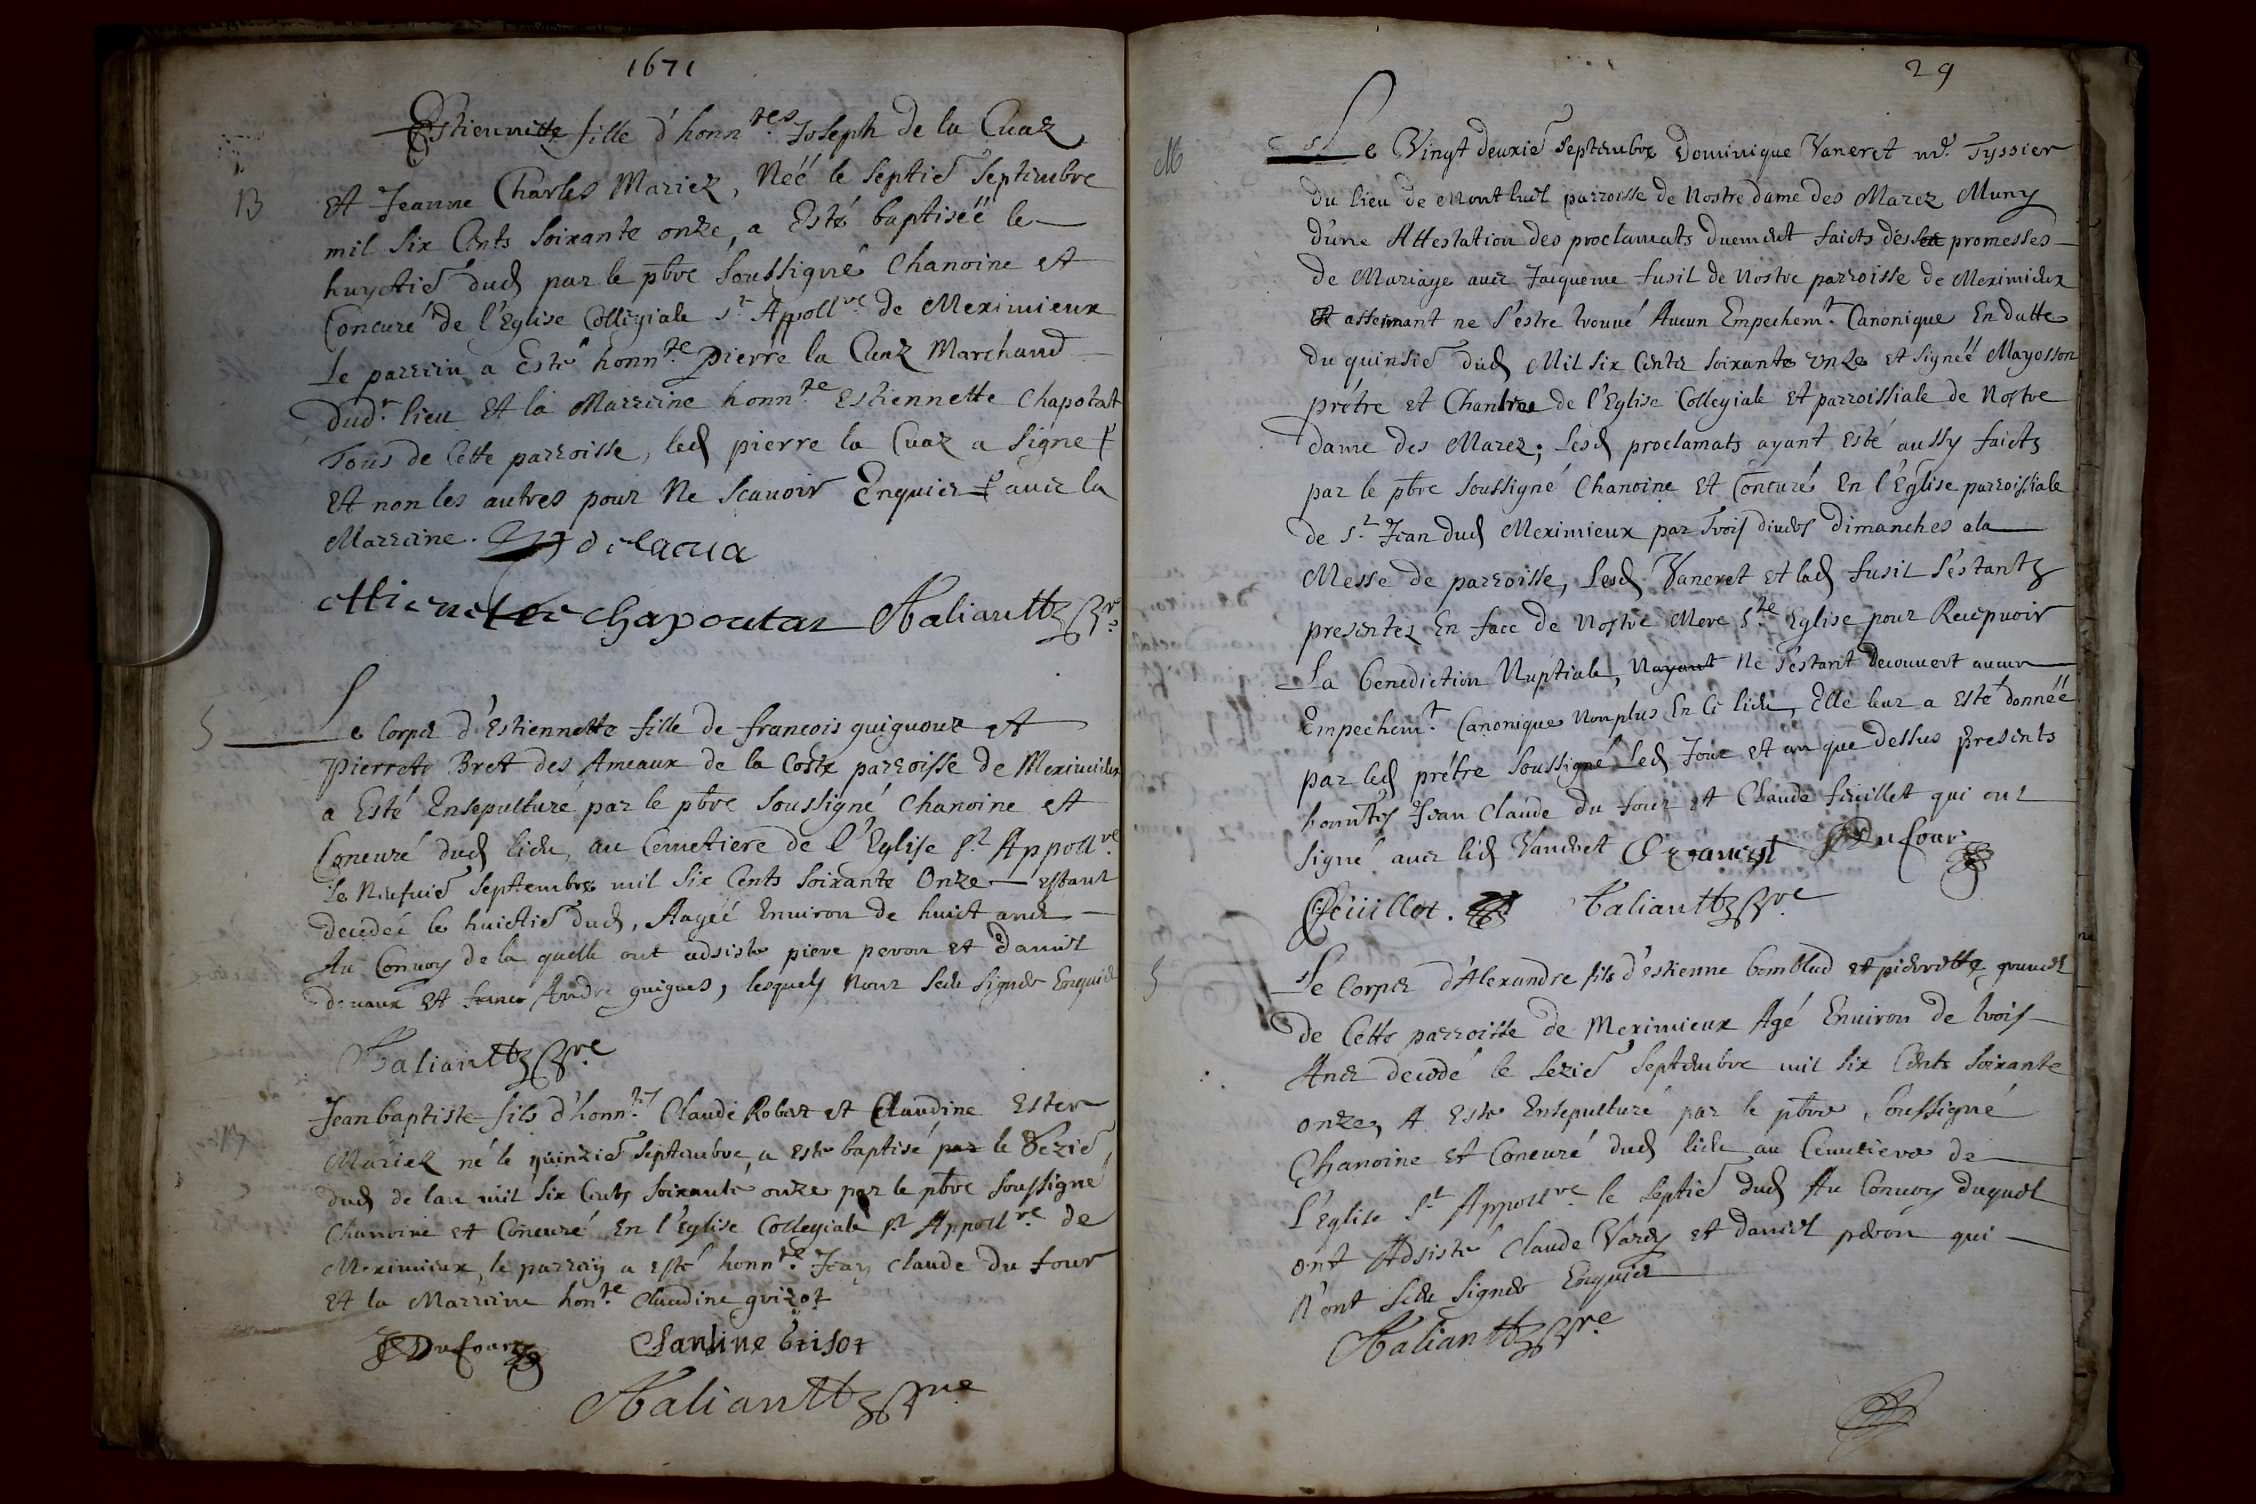 1671
Estiennette fille d'honn.tes Joseph de la Cuaz
B
Et Jeanne Charles Mariez, Néé le septie Septembre
mil six Cents soixante onze, a Esté baptiséé le
huyctie dud par le pbre soussigné Chanoine et
Concuré de l'Eglise Collegiale St Apoll.re de Meximieux
Le parrin a Esté honn.te Pierre la Cuaz Marchand
dud.t lieu Et la Marrine honn.te Estiennette Chapotat
Tous de Cette parroisse, led pierre la Cuaz a signé
Et non les autres pour Ne scavoir Enquier avec la
Marrine. P delacua
ettienette chapoutar Raliantt pbre
S
Le Corps d'Estiennette fille de francois guiguour et
Pierrete Bret des Ameaux de la Coste parroisse de Meximieux
a Esté Ensepulturé par le pbre soussigné Chanoine et
Concuré dud lieu, au Cemetiere de l'Eglise St Appoll.re
Le Neufvie Septembre mil six Cents soixante Onze estant
decedéé le huictie dud, Aagéé Environ de huict ans
Au Convoy de la quelle ont adsisté piere peron et Daniel
devaux et Andre guigues, lesquels nont sceu signer Enquis
Raliantt pbre
Jean baptiste fils d'honn.tes Claude Robert et Claudine Ester
Mariez né le quinzie Septembre, a esté baptisé par le Sezie,
dud de lan mil six Cents soixante onze par le pbre soussigné
Chanoine et Concuré En l'Eglise Collegiale St Appoll.re de
Meximieux, le parrin a esté honn.te Jean Claude Du four
Et la Marrine hon.te Claudine grizot
JC Dufour Claudine Grisot
Raliantt pbre
29
M
Le Vingt deuxie Septembre Dominique Vaneret m.e Tyssier
du lieu de Montluel parroisse de Nostre dame des Marez Muny
d'une Attestation des proclamats duement faicts des promesses
de Mariage avec Jacqueme fusil de Nostre parroisse de Meximieux
Et asseurant ne s'estre trouvé Aucun Empechem.t Canonique En datte
du quinsie dud Mil six Cents soixante onze et signéé Mayosson
prétre et Chantre de l'Eglise Collegiale et parroissiale de Nostre
dame des Marez; Lesd proclamats ayant esté aussy faicts
par le pbre soussigné Chanoine et Concuré En l'Eglise parroissiale
de St Jean dud Meximieux par trois divers dimanches a la
Messe de parroisse, Lesd Vaneret et lad fusil s'estants
presentez En face de Nostre Mere S.te Eglise pour Recepvoir
La benediction Nuptiale, Nayant Ne s'estant decouvert aucun
Empechem.t Canonique Non plus En Ce lieu, Elle leur a esté donnéé
par led prétre soussigné Led Jour et an que dessus presents
honn.tes Jean Claude du four et Claude feuillet qui ont
signé avec led Vaneret D Vaneret JC Dufour
C feüillet. Raliantt pbre
S
Le Corps d'Alexandre fils d'estienne bomblud et pierrette
de Cette parroisse de Meximieux Agé Environ de trois
Ans decedé le Sezie Septembre mil six Cents soixante
onze, A Esté Ensepulturé par le pbre soussigné
Chanoine et Concuré dud lieu au Cemetiere de
L'Eglise St Appoll.re le Septie dud Au Convoy duquel
ont Adsisté Claude Vardy et Daniel peron qui
N'ont sceu signer Enquis
Raliantt pbre